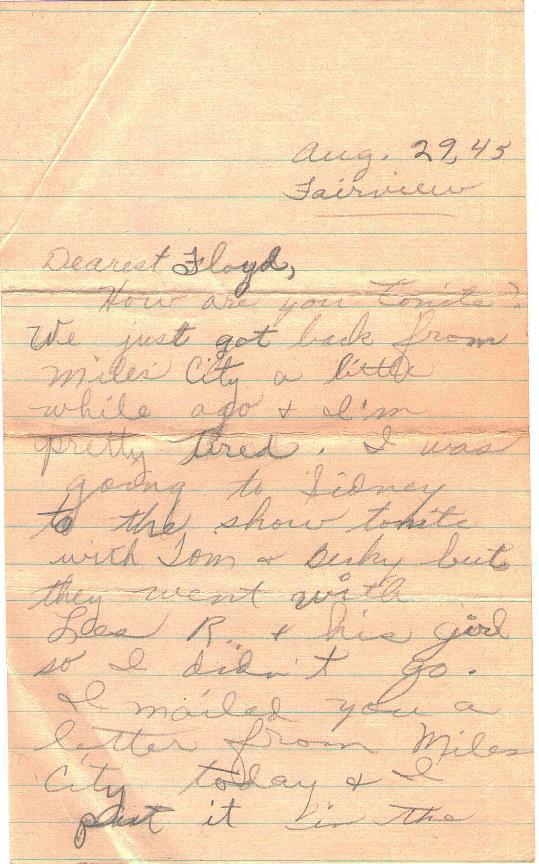 Aug. 29, 45
Fairview
Dearest Floyd,
How are you tonite?
We just got back from
Miles City a little
while ago & I'm
pretty tired. I was
going to Sidney
to the show tonite
with Tom & Becky but
they went with
Les R. & his girl
so I didn't go.
I mailed you a
letter from Miles
City today & I
put it in the